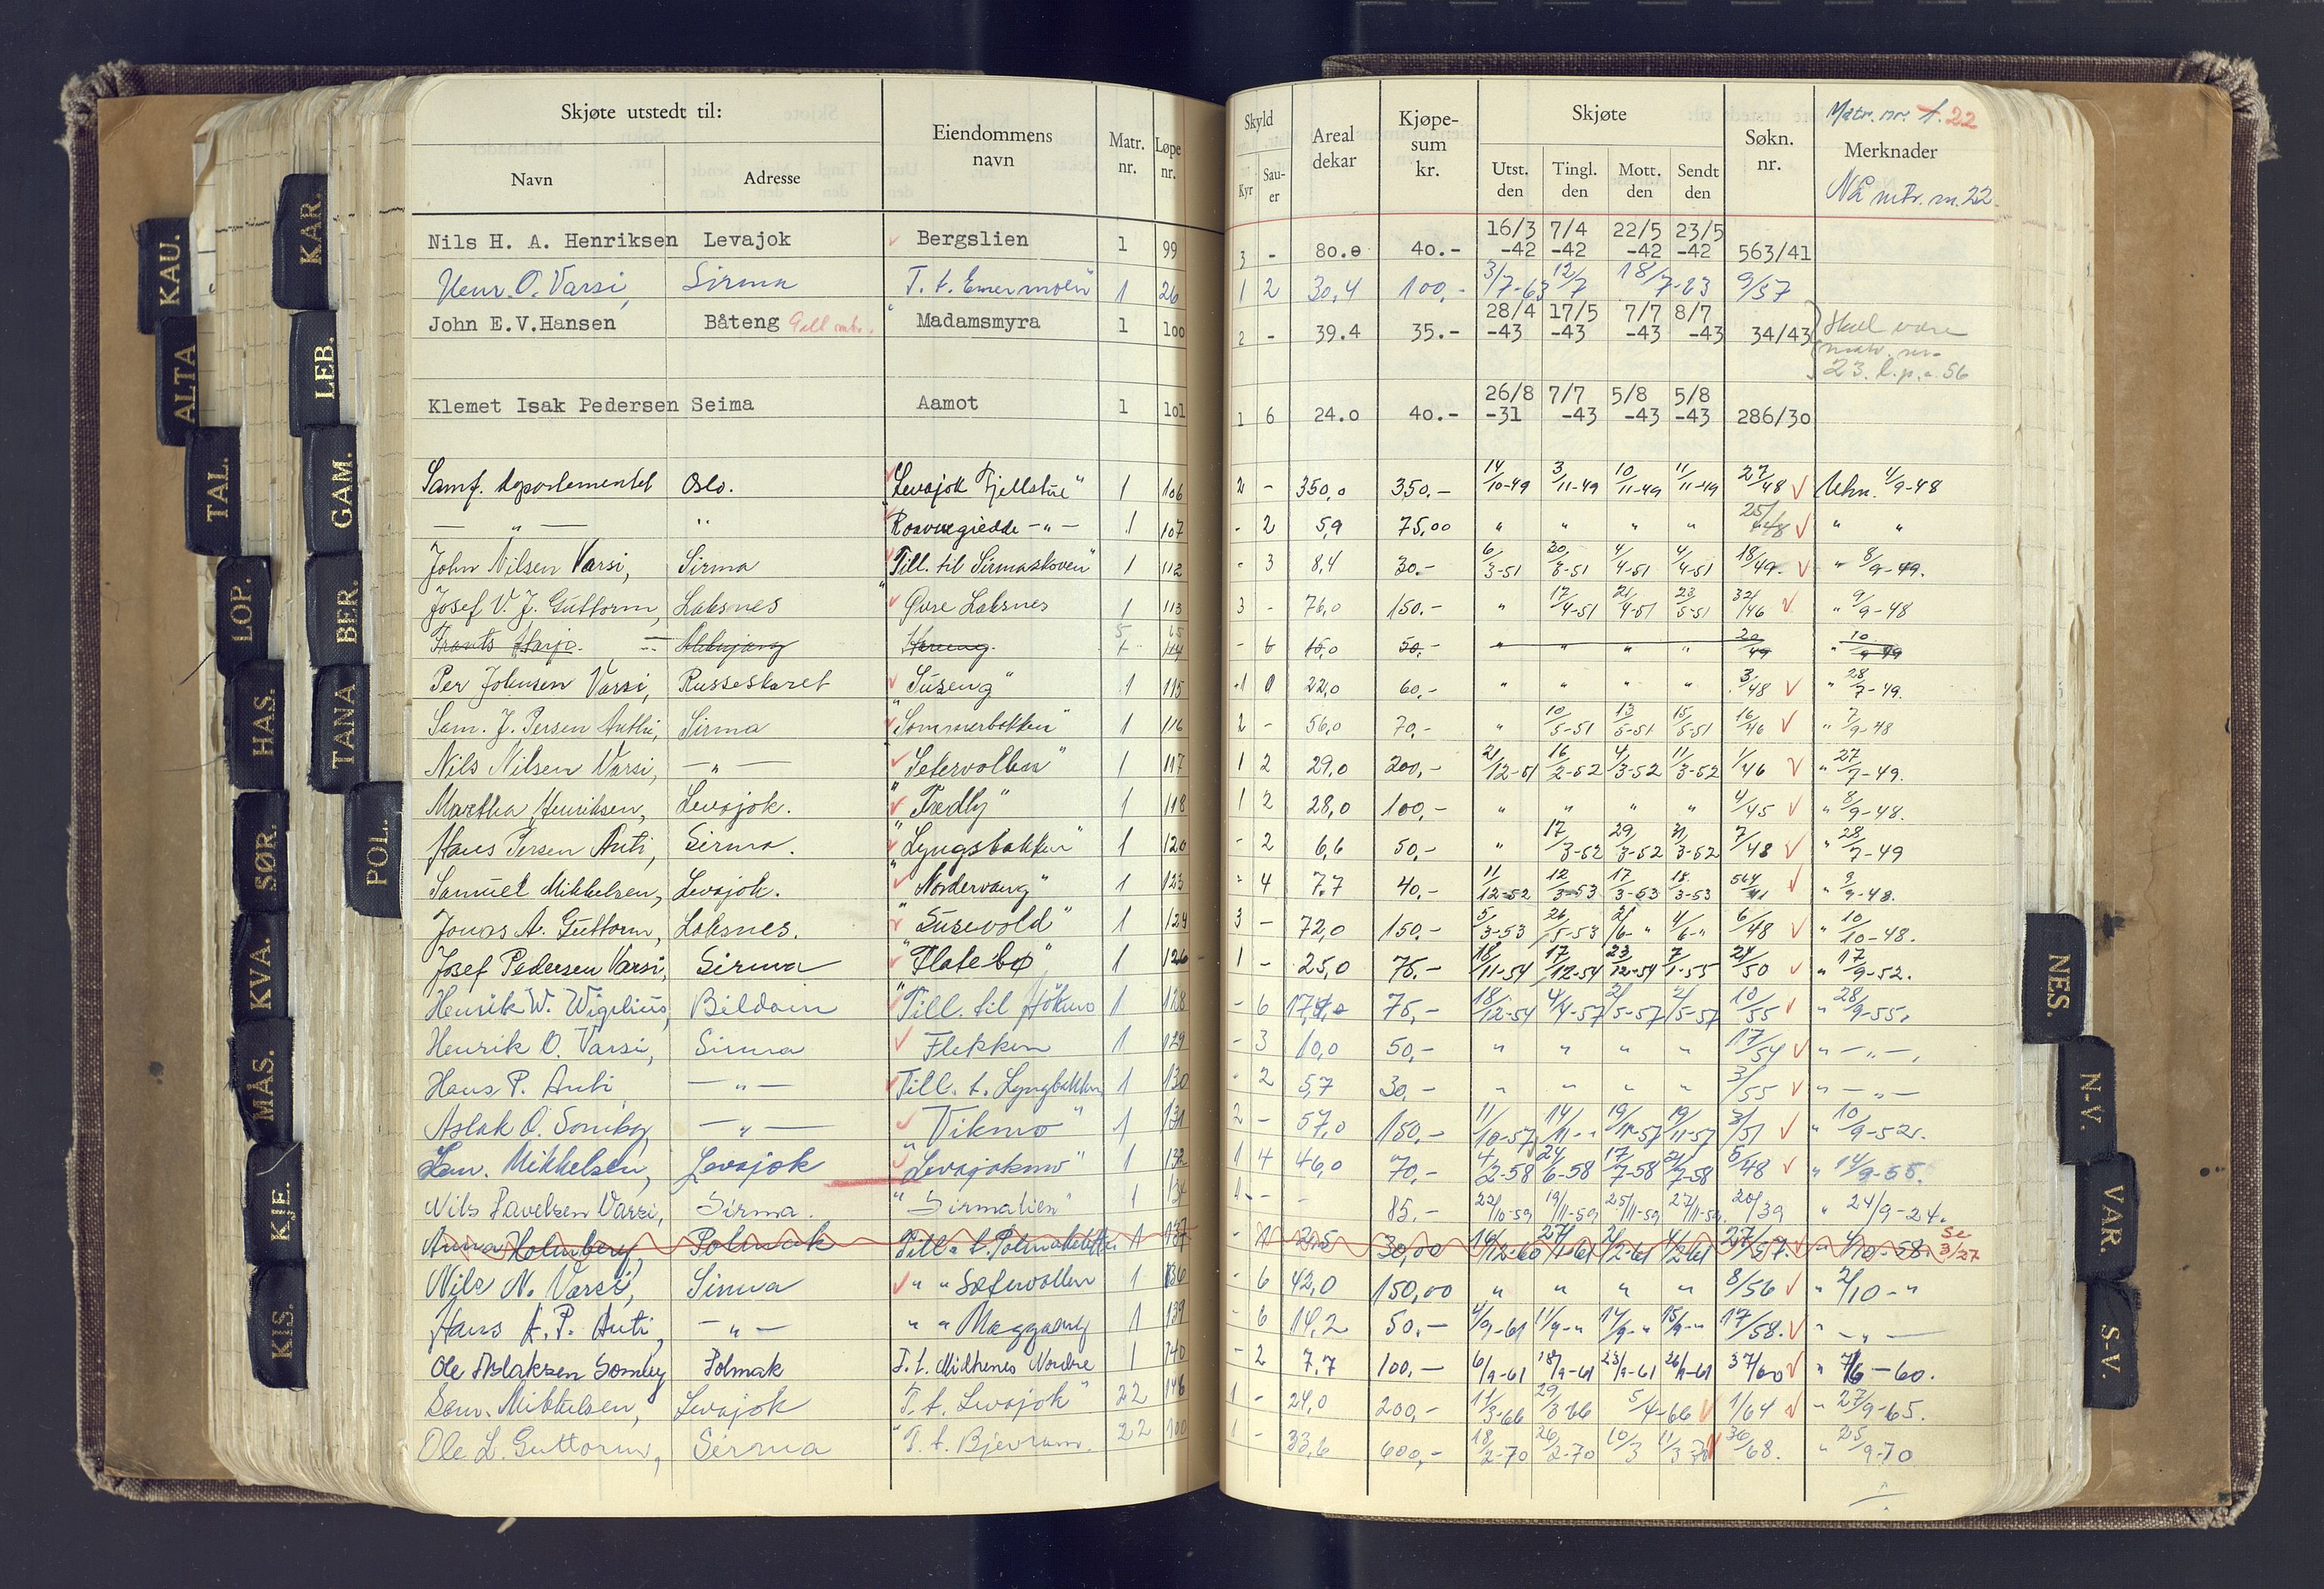 Skjøte utstedt til:
Navn Adresse Eiendommens navn Matr. nr. Løpe nr. Skyld Kyr Sauer Areal dekar Kjøpesum kr. Skjøte Utst. den Tingl. den Mott. den Sendt den Søkn. nr. Merknader
Matr. nr. 1. 22
Nå mtr. nr. 22.
Nils H. A. Henriksen Levajok Bergslien 1 99 3 - 80.0 40.- 16/3 -42 7/4 -42 22/5 -42 23/5 -42 563/41
Henr. O. Varsi, Sirma T. t. 1 26 1 2 30,4 100,- 3/7-63 12/7 18/7-63 9/57
John E.V.Hansen Båteng Madamsmyra 1 100 2 - 39.4 35.- 28/4 -43 17/5 -43 7/7 -43 8/7 -43 34/43 Skal være
matr. nr.
23. l.p.n. 56
Klemet Isak Pedersen Seima Aamot 1 101 1 6 24.0 40.- 26/8 -31 7/7 -43 5/8 -43 5/8 -43 286/30
Samf. departementet Oslo. "Levajok Fjellstue" 1 106 2 - 350,0 350,- 14/10-49 3/11-49 10/11-49 11/11-49 27/48 Ukn. 4/9-48
— " — " — " — 1 107 - 2 5,9 75,00 " " " " 25/48 " "
John Nilsen Varsi, Sirma "Till. til Sirmaskoven" 1 112 - 3 8,4 30.- 6/3-51 20/3-51 4/4-51 4/4-51 18/49. " 8/9-49.
Josef V. J. Guttorm, Laksnes Øvre Laksnes 1 113 3 - 76,0 150.- " 17/4-51 21/4-51 23/5-51 32/46 " 9/9-48
Frants Harjo. - 6 15,0 50.- " " " " 20/49 " 10/9-49
Per Johnsen Varsi, Russeskaret "Suseng" 1 115 22,0 60,- " " " " 3/48 " 28/7-49.
Sam. J. Persen Anthi, Sirma "Sommerbakken" 1 116 2 - 56,0 70,- " 10/5-51 13/5-51 15/5-51 16/46 " 7/9-48
Nils Nilsen Varsi, — " — "Setervollen" 1 117 1 2 29,0 200,- 21/12-51 16/2-52 4/3-52 11/3-52 1/46 " 27/7-49.
Martha Henriksen, Levajok. "Fredly" 1 118 1 2 28,0 100,- " " " " 4/45 " 8/9-48.
Hans Persen Anti, Sirma. "Lyngbakken" 1 120 - 2 6,6 50,- " 17/3-52 29/3-52 31/3-52 7/48 " 28/7-49
Samuel Mikkelsen, Levajok. "Nordervang" 1 123 - 4 7.7 40,- 11/12-52 12/3-53 17/3-53 18/3-53 564/41 " 9/9-48.
Jonas A. Guttorm, Laksnes. "Susevold" 1 124 3 - 72,0 150.- 5/3-53 26/5-53 2/6-" 4/6-" 6/48 " 10/10-48.
Josef Pedersen Varsi, Sirma "Flatebø" 1 126 1 - 25,0 75,- 18/11-54 17/12-54 23/12-54 7/1-55 21/50 " 17/9-52.
Henrik W. Wigelius, Bildain "Till. til Høkmo 1 128 - 6 17,4 75,- 18/12-54 4/4-57 2/5-57 2/5-57 10/55 " 28/9-55.
Henrik O. Varsi, Sirma Flekken 1 129 - 3 10,0 50,- " " " " 17/54 " — " —
Hans P. Anti — " — Till. t. Lyngbakken 1 130 - 2 5,7 30,- " " " " 3/55 " — " —
Aslak O. Somby — " — "Vikmo" 1 131 2 - 57,0 150,- 11/10-57 14/11-" 19/11-57 19/11-57 3/51 " 10/9-52.
Sam. Mikkelsen, Levajok "Levajokmo" 1 132 1 4 46,0 70,- 4/2-58 24/6-58 17/7-58 21/7-58 5/48 " 14/9-55.
Nils Pavelsen Varsi, Sirma. "Sirmalien" 1 134 1 - - 85,- 22/10-59 19/11-59 25/11-59 27/11-59. 20/39 " 24/9-24.
Anna Holmberg, Polmak Till. t. 1 137 - 1 20,5 30,00 16/12-60 27/1-61 2/2-61 4/2-61 27/57. " 4/10-58. Se 3/27
Nils N. Varsi, Sirma " " Setervollen 1 136 - 6 42,0 150,00 " " " " 8/56 " 2/10-"
Hans A. P. Anti, — " — " " 1 139 - 6 14,2 50,- 4/9-61 11/9-" 14/9-" 15/9-" 17/58. " — " —
Ole Aslaksen Somby Polmak T. t. Midtenes Nordre 1 140 - 2 7.7 100,- 6/9-61 18/9-61 23/9-61 26/9-61 37/60 " 7/6-60.
Sam. Mikkelsen, Levajok "T. t. Levajok" 22 146 1 - 24,0 200,- 11/3-66 29/3-66 5/4-66 1/64 " 27/9-65.
Ole L. Guttorm, Sirma "T. t. 22 100 1 - 33,6 600,- 18/2-70 26/2-70 10/3 11/3 70 36/68. " 25/9-70
KAU.
ALTA
TAL.
LOP.
HAS.
SØR.
KVA.
MÅS.
KJE.
KIS.
KAR.
LEB.
GAM.
BER.
TANA
POL.
NES.
N-V.
VAR.
S-V.